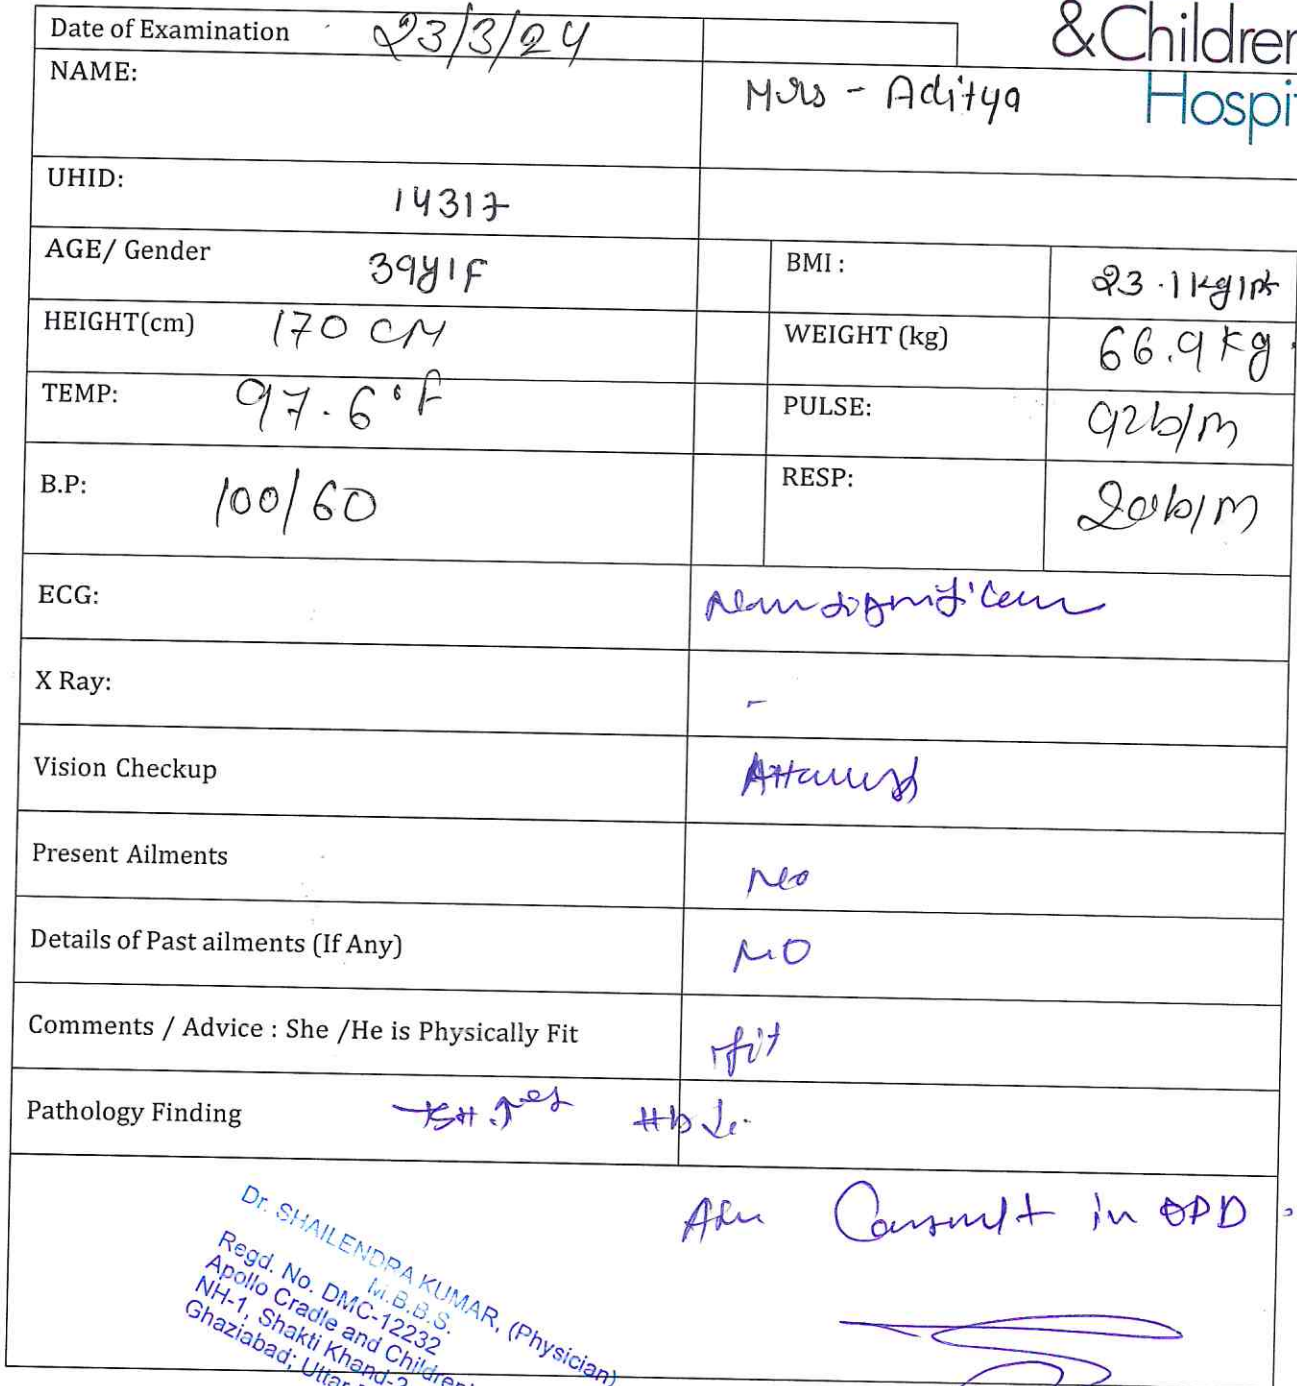 &Children
Hospit
Date of Examination 23/3/24
NAME: Mrs - Aditya
UHID: 14317
AGE/ Gender 39y/F BMI : 23.1kg/
HEIGHT(cm) 170 CM WEIGHT (kg) 66.9 kg
TEMP: 97.6°F PULSE: 92b/m
B.P: 100/60 RESP: 20b/m
ECG:
X Ray: -
Vision Checkup
Present Ailments No
Details of Past ailments (If Any) NO
Comments / Advice : She /He is Physically Fit fit
Pathology Finding TSH ↑ Hb ↓
Consult in OPD
Dr. SHAILENDRA KUMAR, (Physician)
M.B.B.S.
Regd. No. DMC-12232
Apollo Cradle and Children
NH-1, Shakti Khand-2
Ghaziabad; Uttar